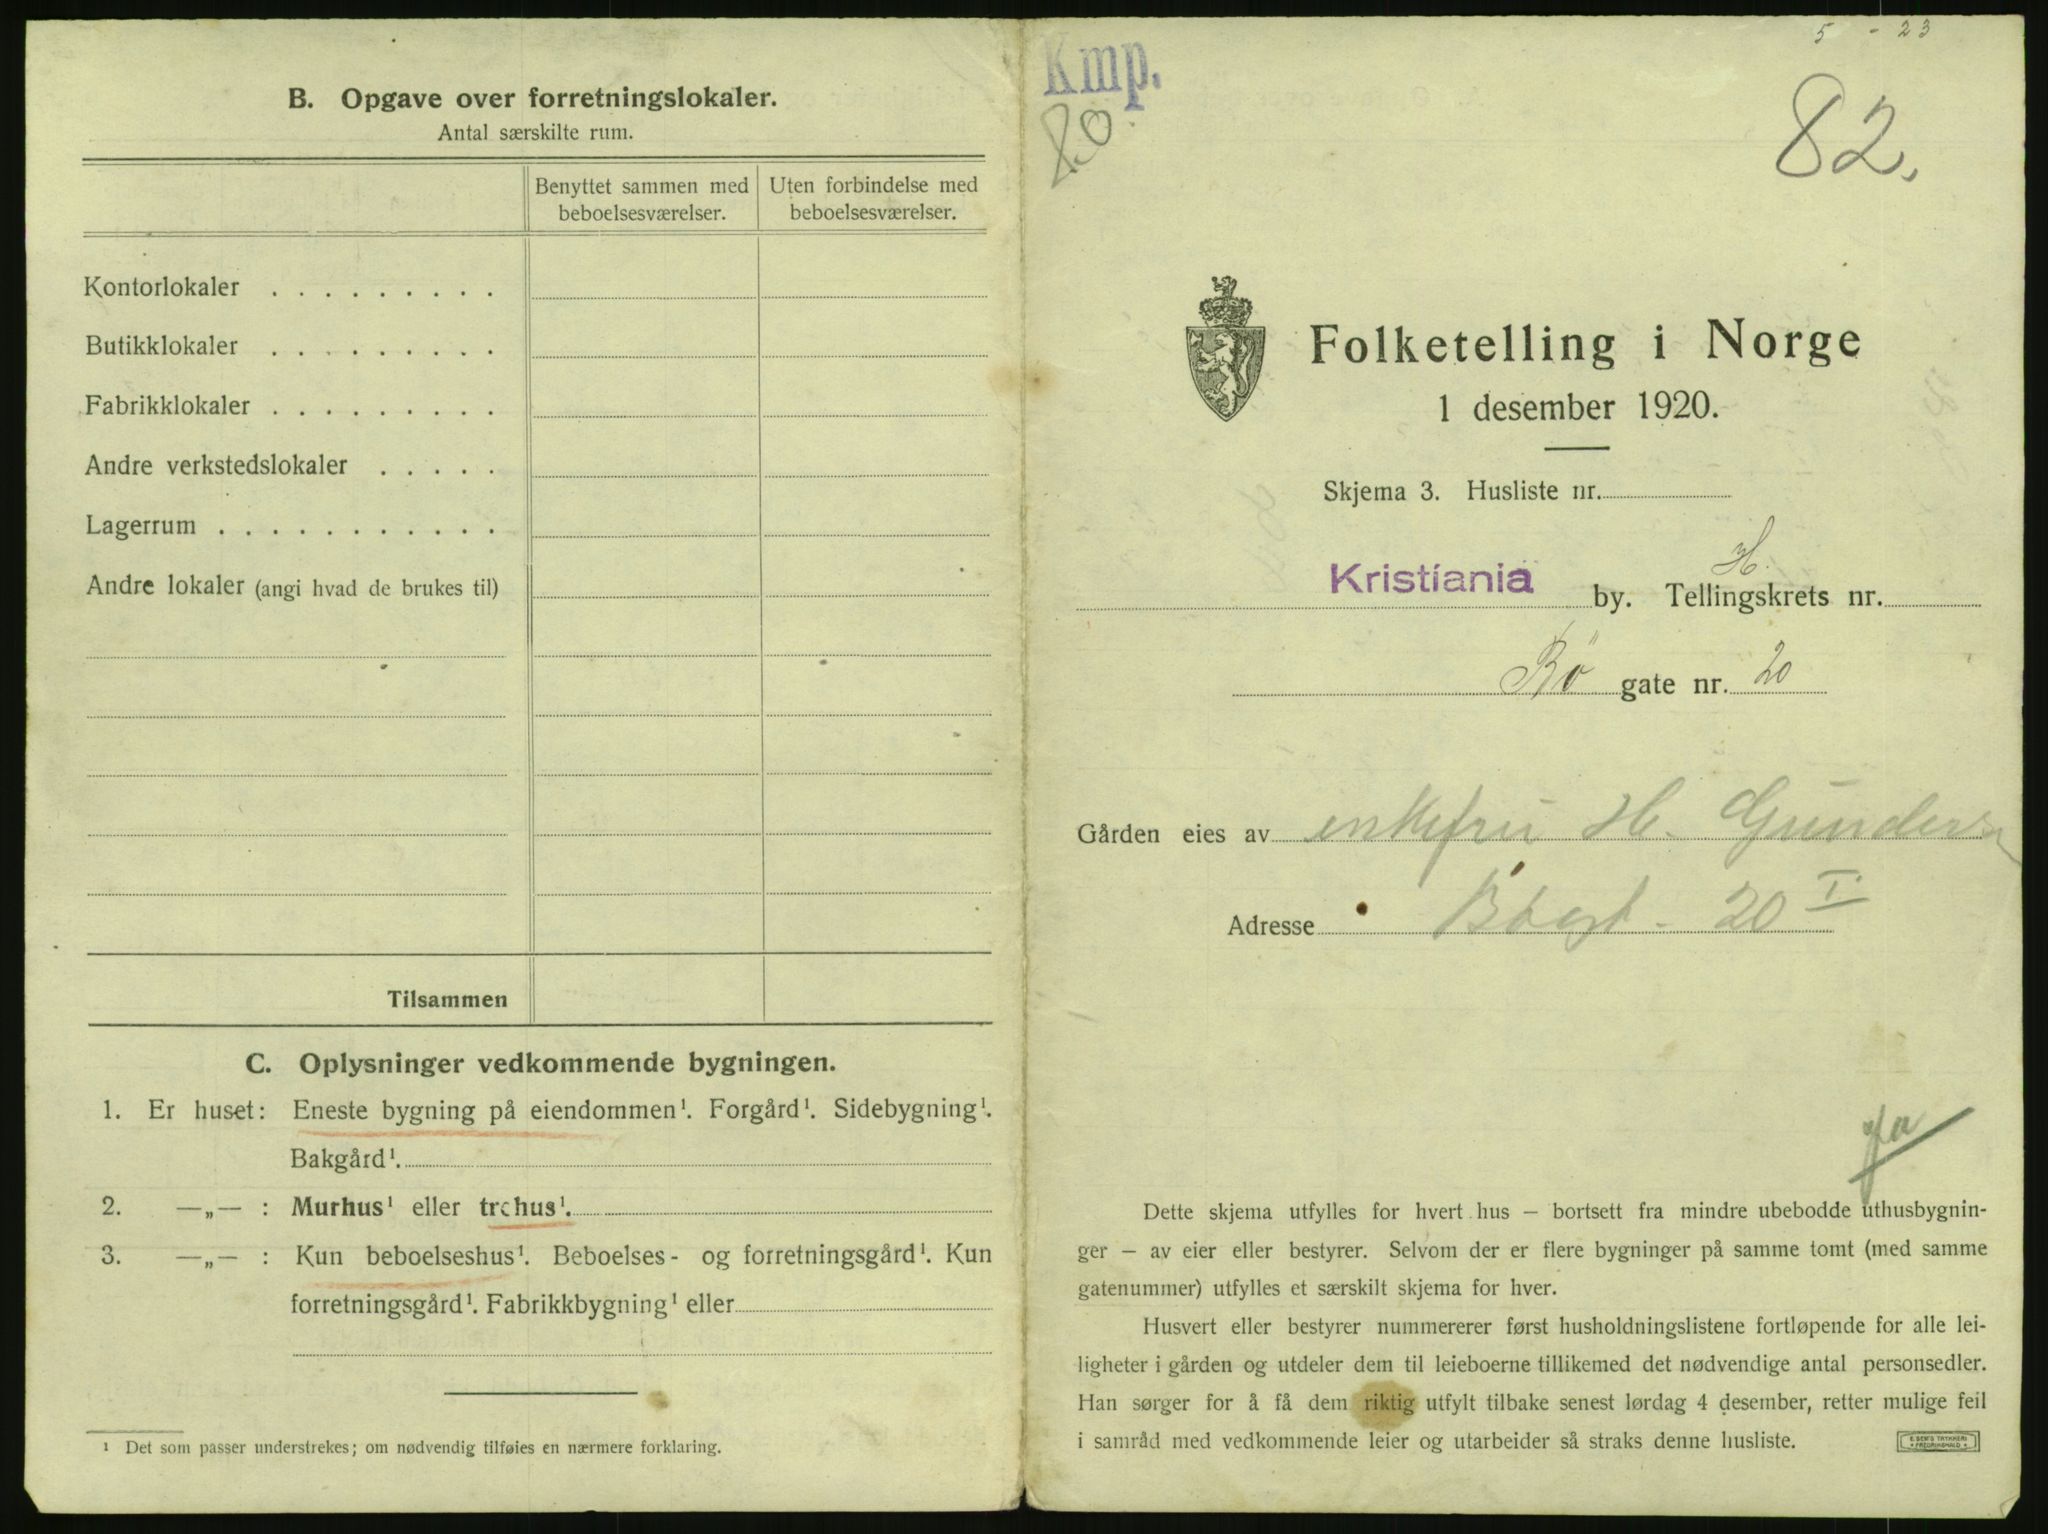 B. Opgave over forretningslokaler.
Antal særskilte rum.
Benyttet sammen med beboelsesværelser.
Uten forbindelse med beboelsesværelser.
Kontorlokaler . . . . . . . . .
Butikklokaler . . . . . . . . .
Fabrikklokaler . . . . . . . . .
Andre verkstedslokaler . . . . .
Lagerrum . . . . . . . . . . .
Andre lokaler (angi hvad de brukes til)
Tilsammen
C. Oplysninger vedkommende bygningen.
1. Er huset: Eneste bygning på eiendommen¹. Forgård¹. Sidebygning¹.
Bakgård¹.
2. —„— : Murhus¹ eller trehus¹.
3. —„— : Kun beboelseshus¹. Beboelses- og forretningsgård¹. Kun
forretningsgård¹. Fabrikkbygning¹ eller
¹ Det som passer understrekes; om nødvendig tilføies en nærmere forklaring.
5 - 23
Kmp.
82.
Folketelling i Norge
1 desember 1920.
Skjema 3. Husliste nr.
H.
Kristiania by. Tellingskrets nr.
Bö gate nr. 20
Gården eies av enkefru H. Gundersen
Adresse Bögt. 20 I
Dette skjema utfylles for hvert hus — bortsett fra mindre ubebodde uthusbygnin-
ger — av eier eller bestyrer. Selvom der er flere bygninger på samme tomt (med samme
gatenummer) utfylles et særskilt skjema for hver.
Husvert eller bestyrer nummererer først husholdningslistene fortløpende for alle lei-
ligheter i gården og utdeler dem til leieboerne tillikemed det nødvendige antal personsedler.
Han sørger for å få dem riktig utfylt tilbake senest lørdag 4 desember, retter mulige feil
i samråd med vedkommende leier og utarbeider så straks denne husliste.